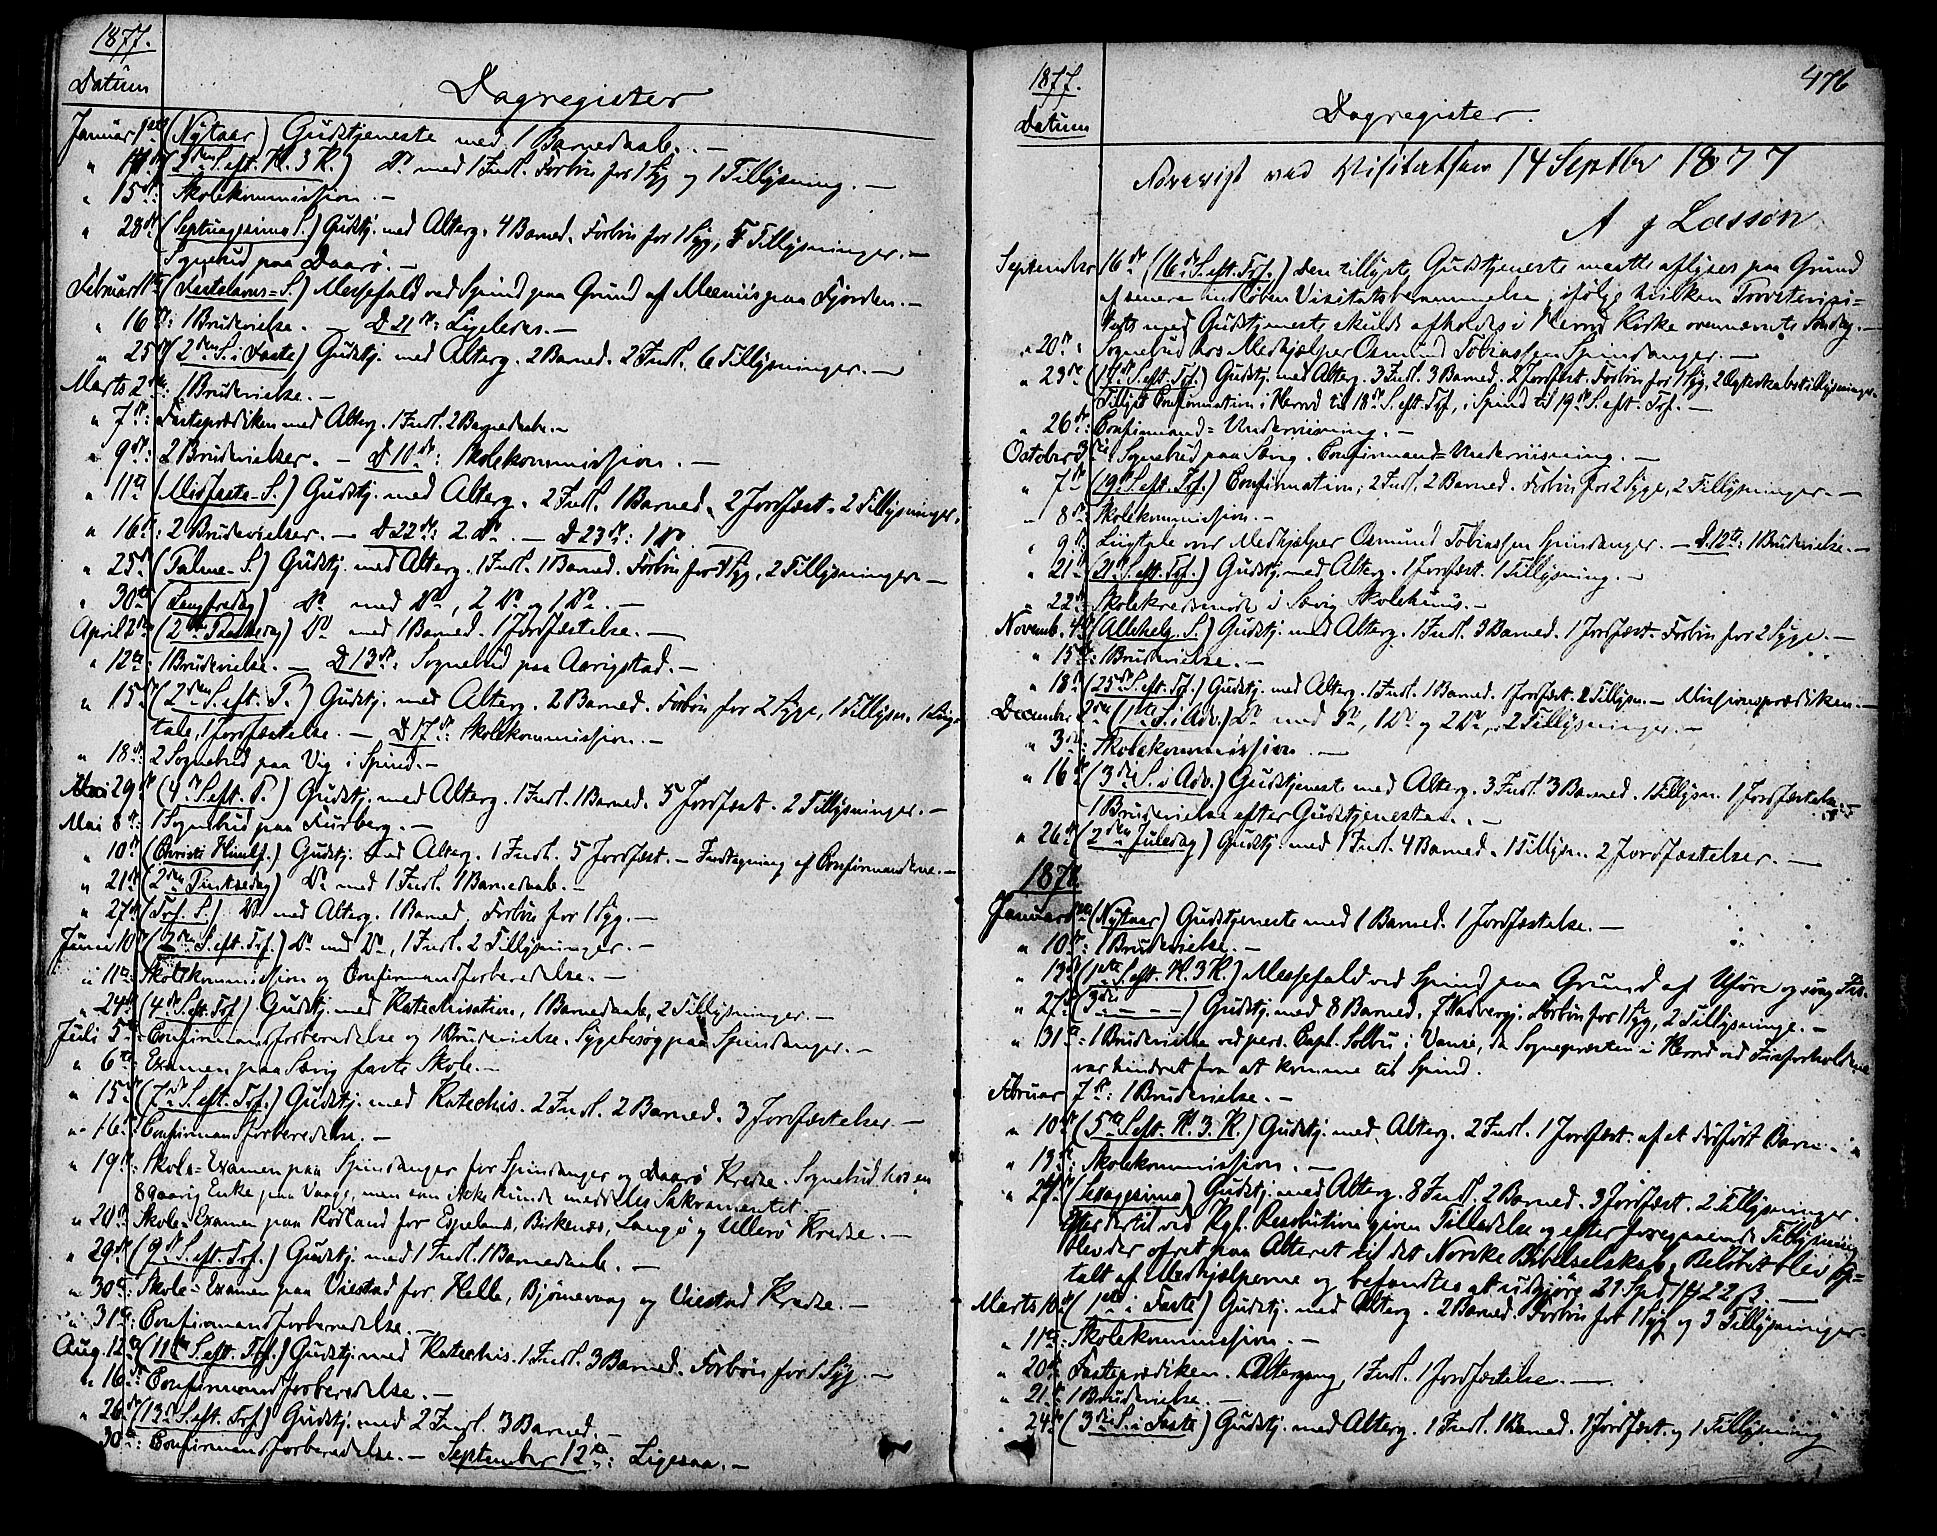 1877.
Datum
Dagregister
Januar 1ste (Nytaar) Gudstjeneste med 1 Barnedaab. —
" 14de (2den S. eft. H. 3 K.) Do med 1 Indl. Forbøn for 1 Syg og 1 Tillysning. —
" 15de: Skolekommission. —
" 28de (Septuagesima S.) Gudstj. med Alterg. 4 Barned. Forbøn for 1 Syg, Tillysninger. —
Sognebud paa Daarø. —
Februar 11te (Fastelavns=S.) Messefald ved Spind paa Grund af Meeniis paa Fjorden. —
" 16de: 1 Brudevielse. — D 21de: Ligeledes. —
" 25de (2den S. i Faste) Gudstj. med Alterg. 2 Barned. 2 Indl. 6 Tillysninger. —
Marts 2den: 1 Brudevielse. —
" 7de: Fasteprædiken med Alterg. 1 Indl. 2 Barnedaab. —
" 9de: 2 Brudevielser. — D 10de: Skolekommission. —
" 11te (Midfaste-S.) Gudstj. med Alterg. 2 Indl. 1 Barned. 2 Jordfæst. 2 Tillysninger.
" 16de: 2 Brudevielser. — D 22de: 2 Do. — D 23de: 1 Do. —
" 25de (Palme-S.) Gudstj. med Alterg. 1 Indl. 1 Barned. Forbøn for 1 Syg, 2 Tillysninger —
" 30te (Langfredag) Do med Do, 2 Do og 1 Do. —
April 2den (2den Paaskedag) Do med 1 Barned. 1 Jordfæstelse. —
" 12te: 1 Brudevielse. — D 13de: Sognebud paa Aavigstad. —
" 15de (2den S. eft. P.) Gudstj. med Alterg. 2 Barned. Forbøn for 2 Syge, 1 Tillysn. 1 Liig=
tale, 1 Jordfæstelse. — D 17de: Skolekommission. —
" 18de: 2 Sognebud paa Vig i Spind. —
29de (4de S. eft. P.) Gudstj. med Alterg. 1 Indl. 1 Barned. 5 Jordfæst. 2 Tillysninger. —
Mai 8de: 1 Sognebud paa Furberg. —
" 10de (Christi Himlf.) Gudstj. med Alterg. 1 Indl. 5 Jordfæst. — Indtagning af Confirmanderne. —
" 21de (2den Pintsedag) Do med 1 Indl. 1 Barnedaab. —
" 27de (Trf. S.) Do med Alterg. 1 Barned. Forbøn for 1 Syg. —
Juni 10de (2den S. eft. Trf.) Do med Do, 1 Indl. 2 Tillysninger. —
" 11te: Skolekommission og Confirmandforberedelse. —
" 24de (4de S. eft. Trf) Gudstj. med Katechisation, 1 Barnedaab, 2 Tillysninger. —
Juli 5te: Confirmandforberedelse og 1 Brudevielse. Sygebesøg paa Spindanger. —
" 6te: Examen paa Sævig faste Skole. —
" 15de (7de S. eft. Trf.) Gudstj. med Katechis. 2 Indl. 2 Barned. 3 Jordfæstelser. —
" 16de: Confirmandforberedelse. —
" 19de: Skole=Examen paa Spindanger for Spindanger og Daarø Kredse. Sognebud hos en
89aarig Enke paa Vaage, men som ikke kunde meddeles Sakramentet.
" 20de: Skole=Examen paa Rødland for Espeland, Birkenæs, Langø og Ullerø Kredse. —
" 29de (9de S. eft. Trf.) Gudstj. med 1 Indl. 1 Barnedaab. —
" 30te: Skole=Examen paa Viestad for Helle, Bjørnevaag og Viestad Kredse. —
" 31te: Confirmandforberedelse. —
Aug. 12te (11te S. eft. Trf.) Gudstj. med Katechis. 1 Indl. 3 Barned. Forbøn for 1 Syg. —
" 16de: Confirmandforberedelse. —
" 26de (13de S. eft. Trf.) Gudstj. med 2 Indl. 3 Barned. —
30te: Confirmandforberedelse. — September 12te: Ligesaa. —
1877.
476
Datum
Dagregister.
ved Visitatsen 14 Septbr 1877
A J Lassøn
September 16de (16de S. eft. Trf.) Den tillyste Gudstjeneste maatte aflyses paa Grund
af senere indløben Visitatsberammelse, ifølge hvilken Provstevisi=
tats med Gudstjeneste skulde afholdes i Herred Kirke ovennævnte Søndag. —
" 20de: Sognebud hos Medhjælper Osmund Tobiassen Spindanger. —
" 23de (17de S. eft. Trf.) Gudstj. med Alterg. 3 Indl. 3 Barned. 2 Jordfæst. Forbøn for 1 Syg, 2 Ægteskabstillysninger.
Tillyst Confirmation i Herred til 18de S. eft. Trf, i Spind til 19de S. eft. Trf. —
" 26de: Confirmand=Underviisning. —
October 3die: Sognebud paa Confirmand=Underviisning. —
" 7de (19de S. eft. Trf.) Confirmation; 2 Indl. 2 Barned. Forbøn for 2 Syge, 2 Tillysninger. —
" 8de: Skolekommission. —
" 9de: Liigtale over Medhjælper Osmund Tobiassen Spindanger. — D. 12te: 1 Brudevielse. —
" 21de (21de S. eft. Trf.) Gudstj. med Alterg. 1 Jordfæst. 1 Tillysning. —
" 22de: Skolekredsmøde i Sævig Skolehuus. —
Novemb. 4de (Allehelg. S.) Gudstj. med Alterg. 1 Indl. 3 Barned. 1 Jordfæst. Forbøn for 2 Syge. —
" 15de: 1 Brudevielse. —
" 18de (25de S. eft. Trf.) Gudstj. med Alterg. 1 Indl. 1 Barned. 1 Jordfæst. 2 Tillysn. — Missionsprædiken. —
December 2den (1ste S. i Adv.) Do med Do, 1 Do og 2 Do, 2 Tillysninger. —
" 3die: Skolekommission. —
" 16de (3die S. i Adv.) Gudstjeneste med Alterg. 3 Indl. 3 Barned. 1 Tillysn. 1 Jordfæstelse. —
1 Brudevielse efter Gudstjenesten. —
" 26de (2den Juledag) Gudstj. med 1 Indl. 4 Barned. 1 Tillysn. 2 Jordfæstelser. —
1878.
Januar 1ste (Nytaar) Gudstjeneste med 1 Barned. 1 Jordfæstelse. —
" 10de: 1 Brudevielse. —
" 13de (1ste S. eft. H. 3 K.) Messefald ved Spind paa Grund af Uføre og svag Iis.
" 27de (3die — — —) Gudstj. med 8 Barned. 7 Nadverg. Forbøn for 1 Syg, 2 Tillysninge. —
" 31te: 1 Brudevielse ved pers. Capl. Solbu i Vanse, da Sognepræsten i Herred ved Iisforholdene
var hindret fra at komme til Spind.
Februar 7de: 1 Brudevielse. —
" 10de (5te S. eft. H. 3. K.) Gudstj. med Alterg. 2 Indl. 1 Jordfæst. af et dødfødt Barn. —
" 13de: Skolekommission. —
" 24de (Sexagesima) Gudstj. med Alterg. 8 Indl. 2 Barned. 3 Jordfæst. 2 Tillysninger.
Efter dertil ved Kgl. Resolution given Tilladelse og efter foregaaende Tillysning
blev der ofret paa Alteret til det Norske Bibelselskab; Beløbet blev op=
talt af Medhjælperne og befandtes at udgjøre 21 Spd 1 # 22 ß. —
Marts 10de (1ste i Faste) Gudstj. med Alterg. 2 Barned. Forbøn for 1 Syg og 3 Tillysninger.
" 11te: Skolekommission. —
" 20de: Fasteprædiken. Altergang, 1 Indl. 1 Jordfæstelse. —
" 21de: 1 Brudevielse. —
" 24de (3die S. i Faste) Gudstj. med Alterg. 1 Indl. 1 Barned. 1 Jordfæst. og 1 Tillysning